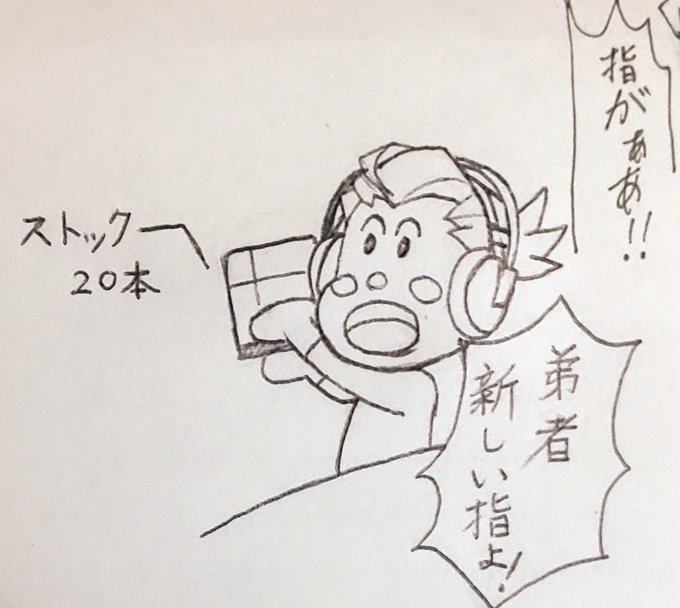 指がぁあ!!
ストック
20本
弟者
新しい指よ!